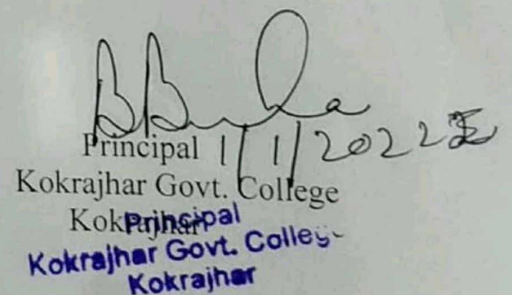 Principal 1/1/2022
Kokrajhar Govt. College
Kokrajhar
Principal
Kokrajhar Govt. College
Kokrajhar